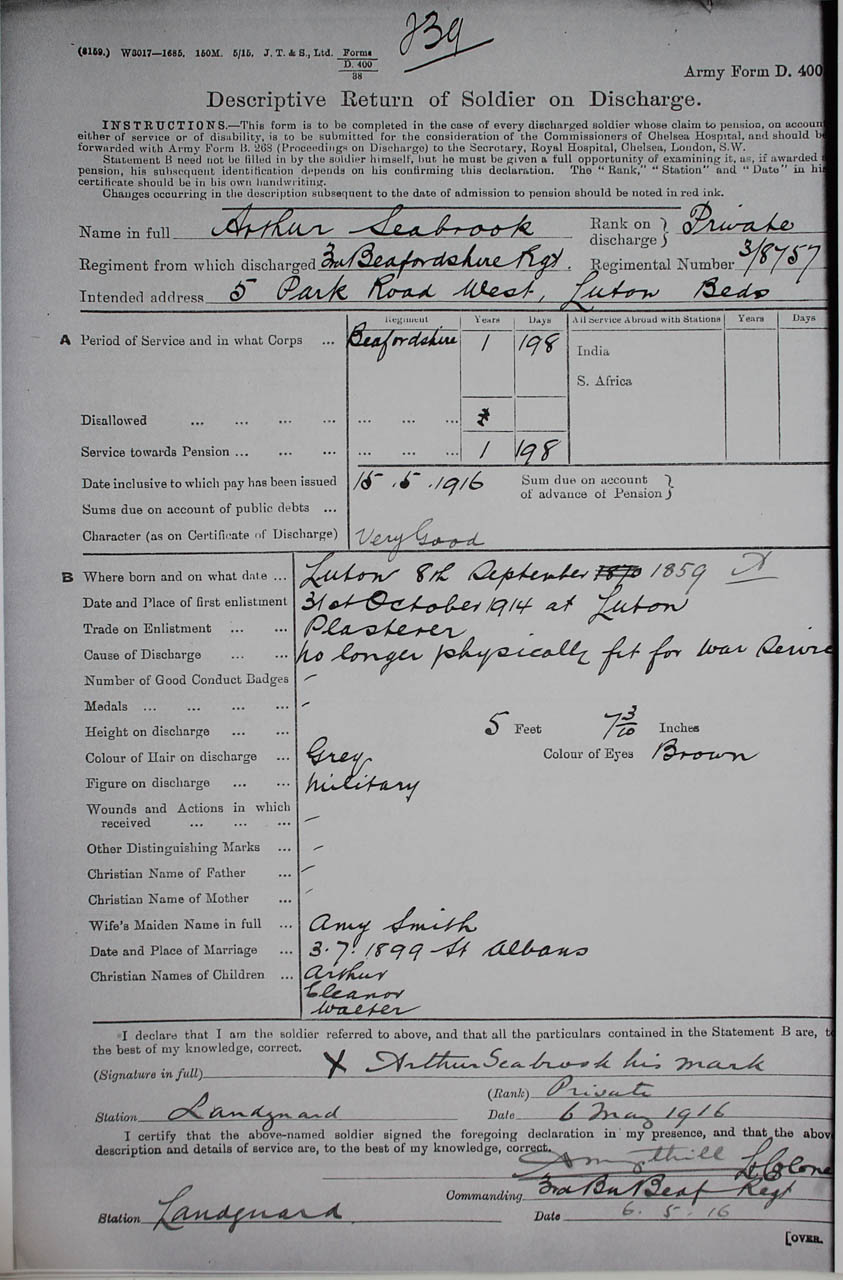 839
(8159.) W3017—1685. 150M. 5/15. J. T. & S., Ltd. Forms D. 400 38
Army Form D. 400
Descriptive Return of Soldier on Discharge.
INSTRUCTIONS.—This form is to be completed in the case of every discharged soldier whose claim to pension, on accoun
either of service or of disability, is to be submitted for the consideration of the Commissioners of Chelsea Hospital, and should b
forwarded with Army Form B. 268 (Proceedings on Discharge) to the Secretary, Royal Hospital, Chelsea, London, S.W.
Statement B need not be filled in by the soldier himself, but he must be given a full opportunity of examining it, as, if awarded a
pension, his subsequent identification depends on his confirming this declaration. The "Rank," "Station" and "Date" in his
certificate should be in his own handwriting.
Changes occurring in the description subsequent to the date of admission to pension should be noted in red ink.
Name in full Arthur Seabrook Rank on discharge } Private
Regiment from which discharged 3rd Beafordshire Rgt. Regimental Number 3/8757
Intended address 5 Park Road West, Luton Beds
Regiment Years Days All Service Abroad with Stations Years Days
A Period of Service and in what Corps ... Beafordshire 1 198 India
S. Africa
Disallowed ... ... ... ... ... ... ...
Service towards Pension ... ... ... ... ... ... 1 198
Date inclusive to which pay has been issued 15.5.1916 Sum due on account of advance of Pension }
Sums due on account of public debts ...
Character (as on Certificate of Discharge) Very Good
B Where born and on what date ... Luton 8th September 1870 1859 X
Date and Place of first enlistment 31st October 1914 at Luton
Trade on Enlistment ... ... Plasterer
Cause of Discharge ... ... no longer physically fit for war Servic
Number of Good Conduct Badges -
Medals ... ... ... ... -
Height on discharge ... ... 5 Feet 7 3/10 Inches
Colour of Hair on discharge ... Grey Colour of Eyes Brown
Figure on discharge ... ... Military
Wounds and Actions in which
received ... ... ... -
Other Distinguishing Marks ... -
Christian Name of Father ... -
Christian Name of Mother ... -
Wife's Maiden Name in full ... Amy Smith
Date and Place of Marriage ... 3.7.1899 St Albans
Christian Names of Children ... Arthur
Eleanor
Walter
I declare that I am the soldier referred to above, and that all the particulars contained in the Statement B are, to
the best of my knowledge, correct.
(Signature in full) X Arthur Seabrook his mark
(Rank) Private
Station Landguard Date 6 May 1916
I certify that the above-named soldier signed the foregoing declaration in my presence, and that the abov
description and details of service are, to the best of my knowledge, correct.
Ampthill Lt Colone
Commanding 3rd Bn Beaf Regt
Station Landguard Date 6. 5. 16
[OVER.